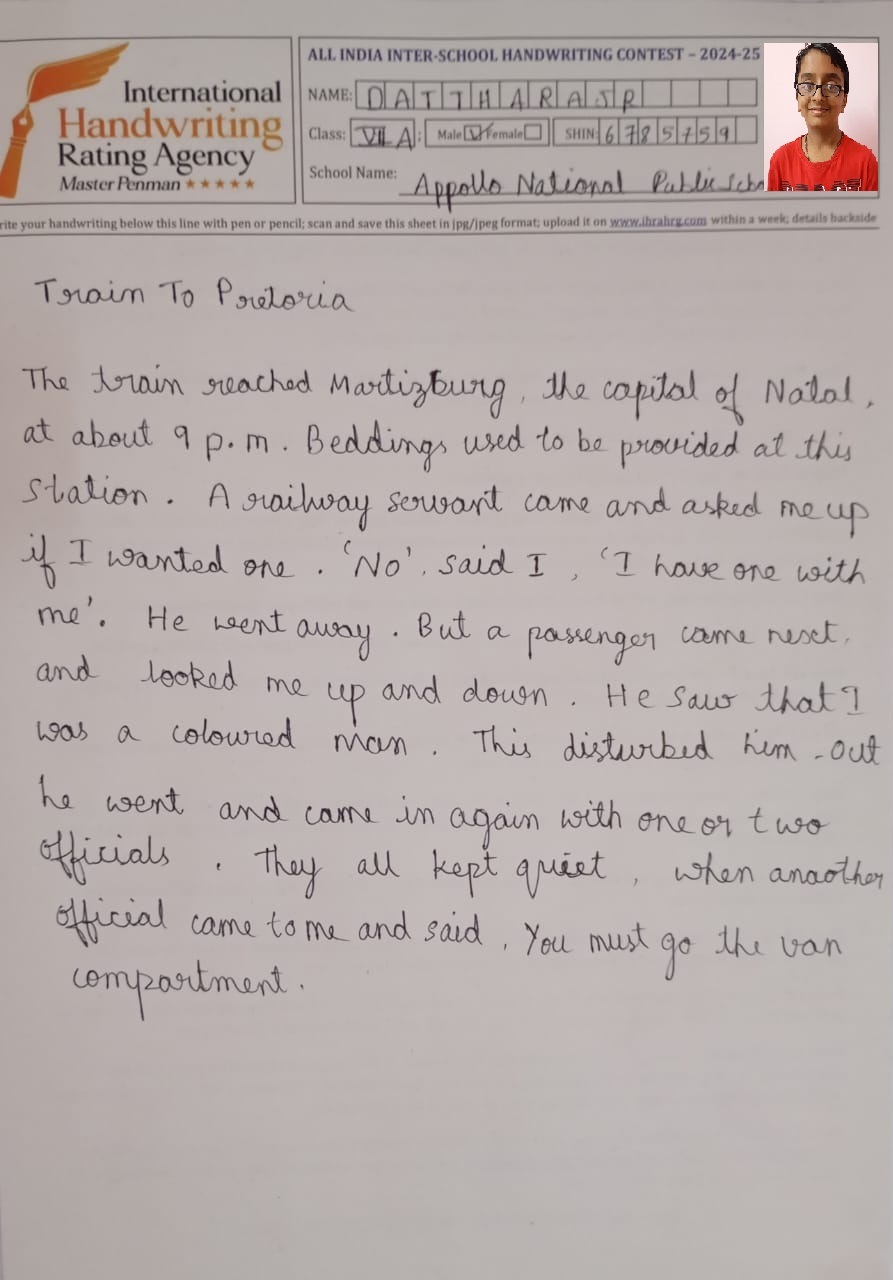 International
Handwriting
Rating Agency
Master Penman ★★★★★
ALL INDIA INTER-SCHOOL HANDWRITING CONTEST – 2024-25
NAME: DATTHARAJR
Class: VII A Male Female SHIN: 6785759
School Name: Appollo National Public Scho
rite your handwriting below this line with pen or pencil; scan and save this sheet in jpg/jpeg format; upload it on www.ihrahrg.com within a week; details backside
Train To Pretoria
The train reached Martizburg, the capital of Natal,
at about 9 p.m. Beddings used to be provided at this
station. A railway servant came and asked me up
if I wanted one. 'No', said I, 'I have one with
me'. He went away. But a passenger came next,
and looked me up and down. He saw that I
was a coloured man. This disturbed him - out
he went and came in again with one or two
officials. They all kept quiet, when anaother
official came to me and said, You must go the van
compartment.